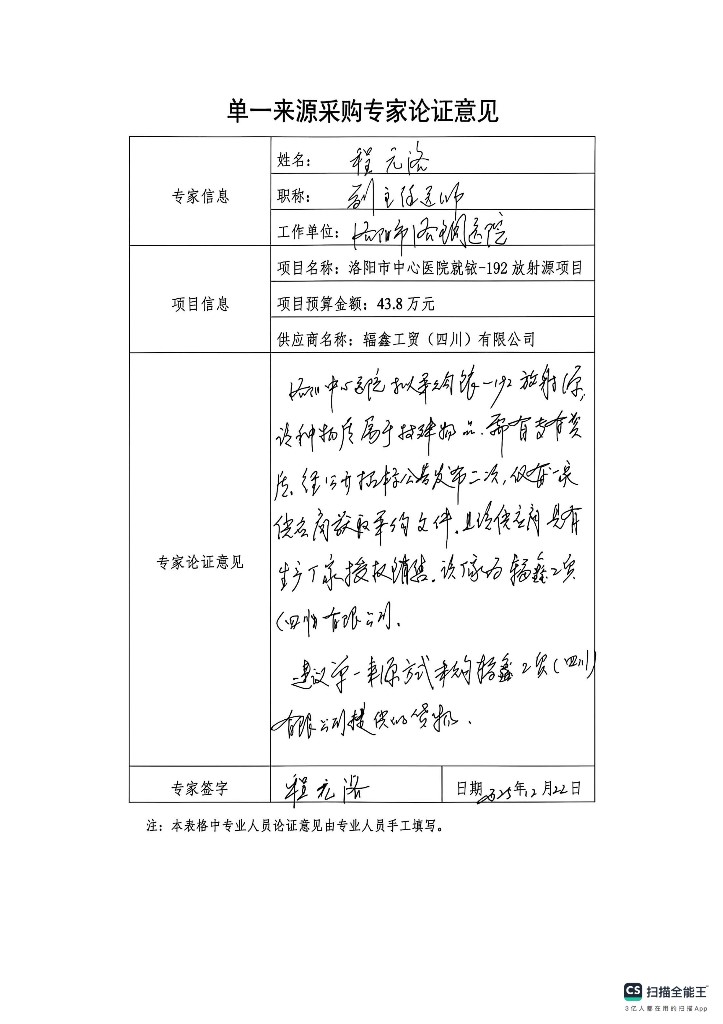 单一来源采购专家论证意见
专家信息
姓名：程元洛
职称：副主任医师
工作单位：洛阳市洛钢医院
项目信息
项目名称：洛阳市中心医院就铱-192放射源项目
项目预算金额：43.8万元
供应商名称：辐鑫工贸（四川）有限公司
专家论证意见
中心医院拟采购铱-192放射源,
该种物质属于特殊物品.需有专有资
质.经公开招标公告发布二次,仅有一家
供应商获取采购文件.且该供应商具有
生产厂家授权销售.该厂家为辐鑫工贸
(四川)有限公司.
建议单一来源方式采购辐鑫工贸(四川)
有限公司提供的货物.
专家签字
程元洛
日期2025年12月22日
注：本表格中专业人员论证意见由专业人员手工填写。
CS 扫描全能王
3亿人都在用的扫描App